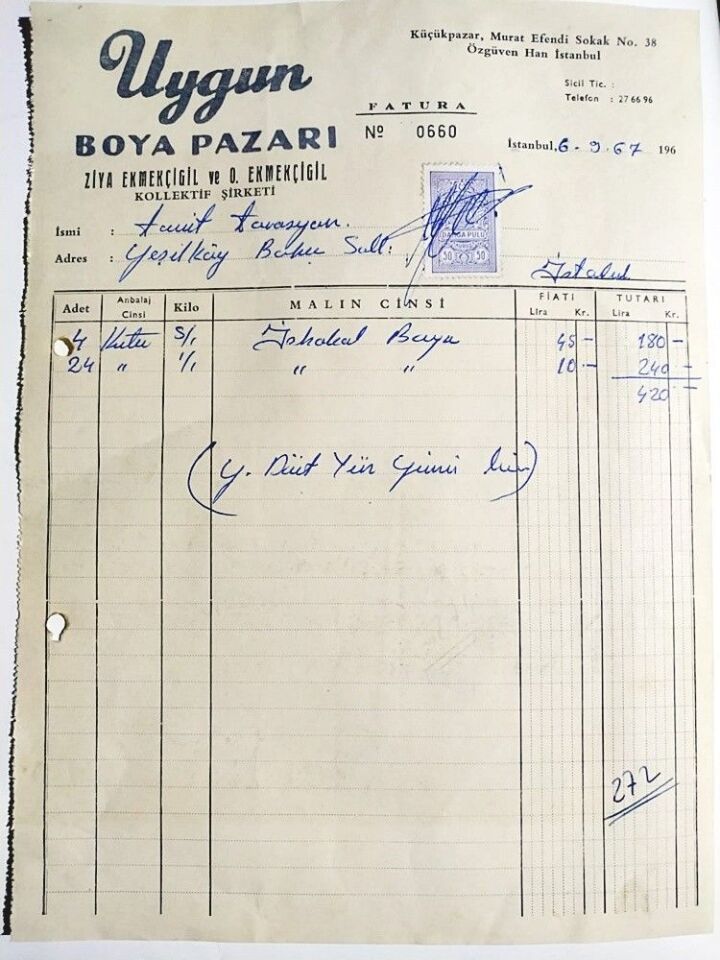 Küçükpazar, Murat Efendi Sokak No. 38
Özgüven Han İstanbul
Uygun
BOYA PAZARI
ZİYA EKMEKÇİGİL ve O. EKMEKÇİGİL
KOLLEKTİF ŞİRKETİ
Sicil Tic. :
Telefon : 27 66 96
FATURA
Nº 0660
İstanbul, 6-9-67 196
DAMGA PULU
50 50
İsmi :
Adres : Yeşilköy
İstanbul
Adet Anbalaj Cinsi Kilo MALIN CİNSİ FİATI Lira Kr. TUTARI Lira Kr.
4 Kutu 5/1 Boya 45 - 180 -
24 " 1/1 " " 10 - 240 -
420 -
(Y. Dört Yüz Yirmi lira)
272